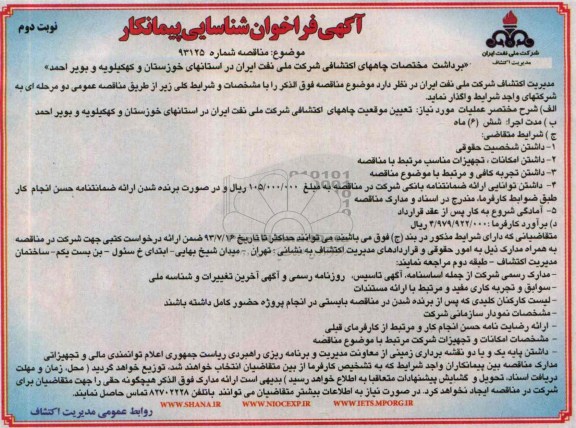 آگهی فراخوان شناسایی پیمانکار
نوبت دوم
شرکت ملی نفت ایران
مدیریت اکتشاف
موضوع: مناقصه شماره ۹۳۱۲۵
«برداشت مختصات چاههای اکتشافی شرکت ملی نفت ایران در استانهای خوزستان و کهکیلویه و بویر احمد»
مدیریت اکتشاف شرکت ملی نفت ایران در نظر دارد موضوع مناقصه فوق الذکر را با مشخصات و شرایط کلی زیر از طریق مناقصه عمومی دو مرحله ای به
شرکتهای واجد شرایط واگذار نماید.
الف) شرح مختصر عملیات مورد نیاز: تعیین موقعیت چاههای اکتشافی شرکت ملی نفت ایران در استانهای خوزستان و کهکیلویه و بویر احمد
ب) مدت اجرا: شش (۶) ماه
ج) شرایط متقاضی:
۱- داشتن شخصیت حقوقی
۲- داشتن امکانات، تجهیزات مناسب مرتبط با مناقصه
۳- داشتن تجربه کافی و مرتبط با موضوع مناقصه
۴- داشتن توانایی ارائه ضمانتنامه بانکی شرکت در مناقصه به مبلغ ۱۰۵/۰۰۰/۰۰۰ ریال و در صورت برنده شدن ارائه ضمانتنامه حسن انجام کار
طبق ضوابط کارفرما، مندرج در اسناد و مدارک مناقصه
۵- آمادگی شروع به کار پس از عقد قرارداد
د) برآورد کارفرما: ۴/۹۷۹/۹۲۲/۰۰۰ ریال
متقاضیانی که دارای شرایط مذکور در بند (ج) فوق می باشند می توانند حداکثر تا تاریخ ۹۳/۷/۱۶ ضمن ارائه درخواست کتبی جهت شرکت در مناقصه
به همراه مدارک ذیل به امور حقوقی و قراردادهای مدیریت اکتشاف به نشانی تهران - میدان شیخ بهایی - ابتدای خ سئول - بن بست یکم - ساختمان
مدیریت اکتشاف - طبقه دوم مراجعه نمایند:
- مدارک رسمی شرکت از جمله اساسنامه، آگهی تاسیس، روزنامه رسمی و آگهی آخرین تغییرات و شناسه ملی
- سوابق و تجربه کاری مفید و مرتبط با ارائه مستندات
- لیست کارکنان کلیدی که پس از برنده شدن در مناقصه بایستی در انجام پروژه حضور کامل داشته باشند
- مشخصات نمودار سازمانی شرکت
- ارائه رضایت نامه حسن انجام کار و مرتبط از کارفرمای قبلی
- مشخصات امکانات و تجهیزات شرکت مرتبط با موضوع مناقصه
- داشتن پایه یک و یا دو نقشه برداری زمینی از معاونت مدیریت و برنامه ریزی راهبردی ریاست جمهوری اعلام توانمندی مالی و تجهیزاتی
مدارک مناقصه بین پیمانکاران واجد شرایط که به تشخیص کارفرما از بین متقاضیان انتخاب خواهند شد، توزیع خواهد گردید (محل، زمان و مهلت
دریافت اسناد، تحویل و گشایش پیشنهادات متعاقبا به اطلاع خواهد رسید) بدیهی است ارائه مدارک فوق الذکر هیچگونه حقی را جهت متقاضیان برای
شرکت در مناقصه ایجاد نخواهد کرد. در صورت نیاز به اطلاعات بیشتر متقاضیان می توانند باتلفن ۸۲۷۰۲۲۲۸ تماس حاصل نمایند.
WWW.SHANA.IR WWW.NIOCEXP.IR WWW.IETS.MPORG.IR
روابط عمومی مدیریت اکتشاف